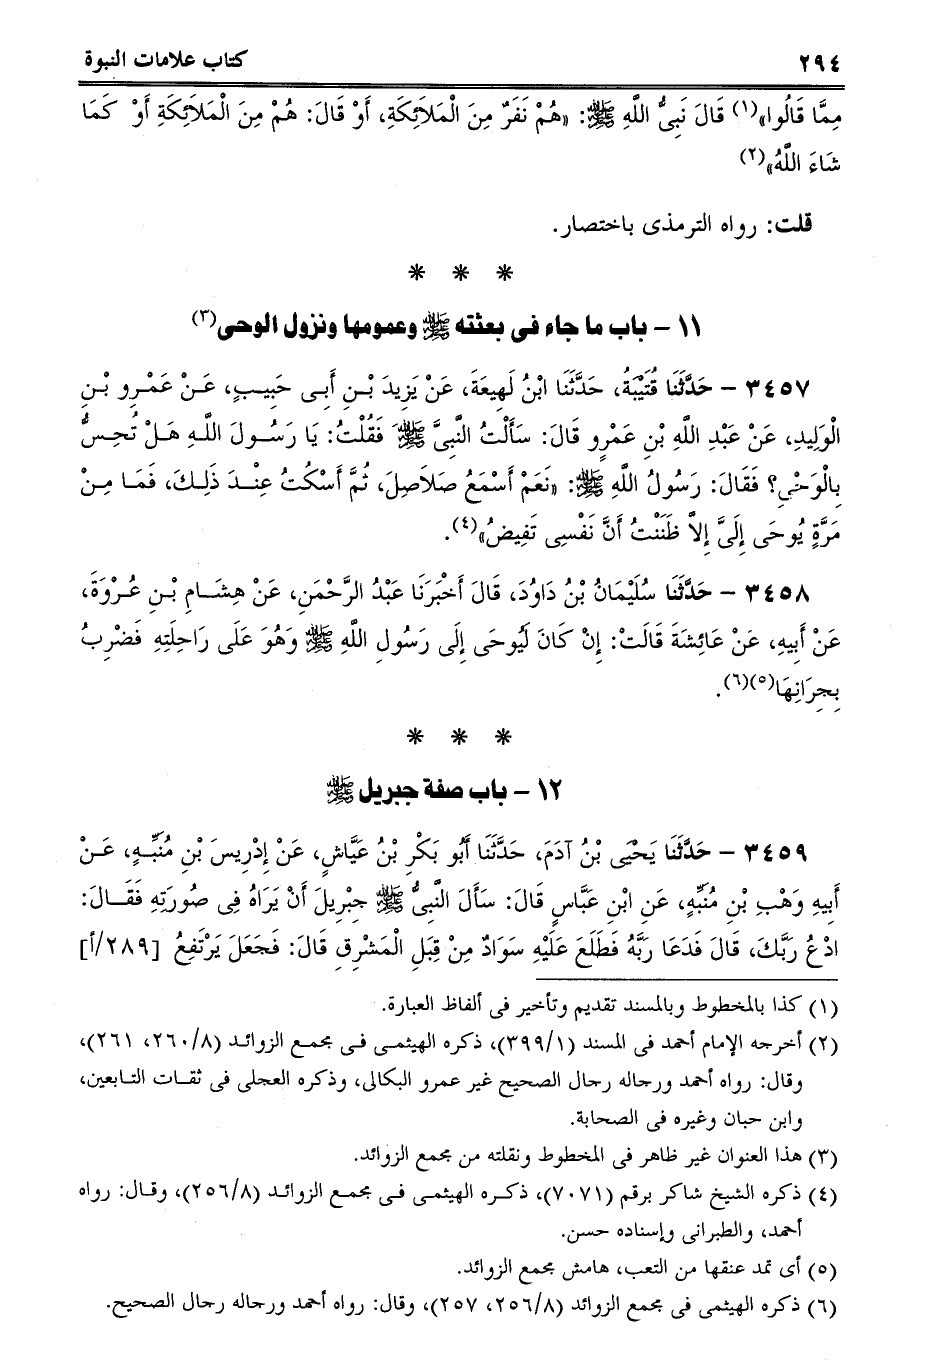 ٢٩٤ كتاب علامات النبوة
مِمَّا قَالُوا»(١) قَالَ نَبِىُّ اللَّهِ ﷺ: «هُمْ نَفَرٌ مِنَ الْمَلاَئِكَةِ، أَوْ قَالَ: هُمْ مِنَ الْمَلاَئِكَةِ أَوْ كَمَا
شَاءَ اللَّهُ»(٢)
قلت: رواه الترمذى باختصار.
* * *
١١ – باب ما جاء فى بعثته ﷺ وعمومها ونزول الوحى(٣)
٣٤٥٧ – حَدَّثَنَا قُتَيْبَةُ، حَدَّثَنَا ابْنُ لَهِيعَةَ، عَنْ يَزِيدَ بْنِ أَبِى حَبِيبٍ، عَنْ عَمْرِو بْنِ
الْوَلِيدِ، عَنْ عَبْدِ اللَّهِ بْنِ عَمْرٍو قَالَ: سَأَلْتُ النَّبِىَّ ﷺ فَقُلْتُ: يَا رَسُولَ اللَّهِ هَلْ تُحِسُّ
بِالْوَحْىِ؟ فَقَالَ: رَسُولُ اللَّهِ ﷺ: «نَعَمْ أَسْمَعُ صَلاَصِلَ، ثُمَّ أَسْكُتُ عِنْدَ ذَلِكَ، فَمَا مِنْ
مَرَّةٍ يُوحَى إِلَىَّ إِلاَّ ظَنَنْتُ أَنَّ نَفْسِى تَفِيضُ»(٤).
٣٤٥٨ – حَدَّثَنَا سُلَيْمَانُ بْنُ دَاوُدَ، قَالَ أَخْبَرَنَا عَبْدُ الرَّحْمَنِ، عَنْ هِشَامِ بْنِ عُرْوَةَ،
عَنْ أَبِيهِ، عَنْ عَائِشَةَ قَالَتْ: إِنْ كَانَ لَيُوحَى إِلَى رَسُولِ اللَّهِ ﷺ وَهُوَ عَلَى رَاحِلَتِهِ فَضْرِبُ
بِجِرَانِهَا(٥)(٦).
* * *
١٢ – باب صفة جبريل ﷺ
٣٤٥٩ – حَدَّثَنَا يَحْيَى بْنُ آدَمَ، حَدَّثَنَا أَبُو بَكْرِ بْنُ عَيَّاشٍ، عَنْ إِدْرِيسَ بْنِ مُنَبِّهٍ، عَنْ
أَبِيهِ وَهْبِ بْنِ مُنَبِّهٍ، عَنِ ابْنِ عَبَّاسٍ قَالَ: سَأَلَ النَّبِىُّ ﷺ جِبْرِيلَ أَنْ يَرَاهُ فِى صُورَتِهِ فَقَالَ:
ادْعُ رَبَّكَ، قَالَ فَدَعَا رَبَّهُ فَطَلَعَ عَلَيْهِ سَوَادٌ مِنْ قِبَلِ الْمَشْرِقِ قَالَ: فَجَعَلَ يَرْتَفِعُ [٢٨٩/أ]
(١) كذا بالمخطوط وبالمسند تقديم وتأخير فى ألفاظ العبارة.
(٢) أخرجه الإمام أحمد فى المسند (٣٩٩/١)، ذكره الهيثمى فى مجمع الزوائد (٢٦٠/٨، ٢٦١)،
وقال: رواه أحمد ورجاله رجال الصحيح غير عمرو البكالى، وذكره العجلى فى ثقات التابعين،
وابن حبان وغيره فى الصحابة.
(٣) هذا العنوان غير ظاهر فى المخطوط ونقلته من مجمع الزوائد.
(٤) ذكره الشيخ شاكر برقم (٧٠٧١)، ذكره الهيثمى فى مجمع الزوائد (٢٥٦/٨)، وقال: رواه
أحمد، والطبرانى وإسناده حسن.
(٥) أى تمد عنقها من التعب، هامش مجمع الزوائد.
(٦) ذكره الهيثمى فى مجمع الزوائد (٢٥٦/٨، ٢٥٧)، وقال: رواه أحمد ورجاله رجال الصحيح.